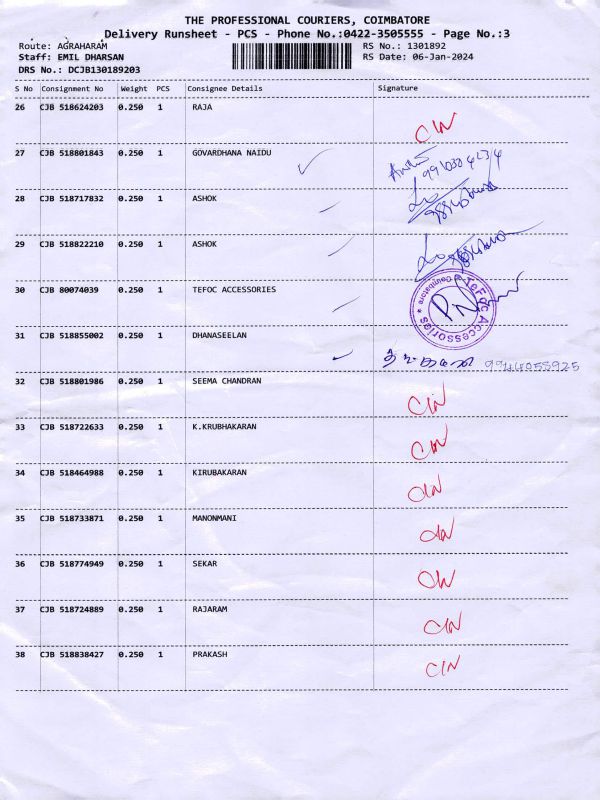 THE PROFESSIONAL COURIERS, COIMBATORE
Delivery Runsheet - PCS - Phone No.:0422-3505555 - Page No.:3
Route: AGRAHARAM RS No.: 1301892
Staff: EMIL DHARSAN RS Date: 06-Jan-2024
DRS No.: DCJB130189203
S No Consignment No Weight PCS Consignee Details Signature
26 CJB 518624203 0.250 1 RAJA
27 CJB 518801843 0.250 1 GOVARDHANA NAIDU
28 CJB 518717832 0.250 1 ASHOK
29 CJB 518822210 0.250 1 ASHOK
30 CJB 80074039 0.250 1 TEFOC ACCESSORIES
TeFoc Accessories * Coimbatore *
31 CJB 518855002 0.250 1 DHANASEELAN
9944055925
32 CJB 518801986 0.250 1 SEEMA CHANDRAN
33 CJB 518722633 0.250 1 K.KRUBHAKARAN
34 CJB 518464988 0.250 1 KIRUBAKARAN
35 CJB 518733871 0.250 1 MANONMANI
36 CJB 518774949 0.250 1 SEKAR
37 CJB 518724889 0.250 1 RAJARAM
38 CJB 518838427 0.250 1 PRAKASH